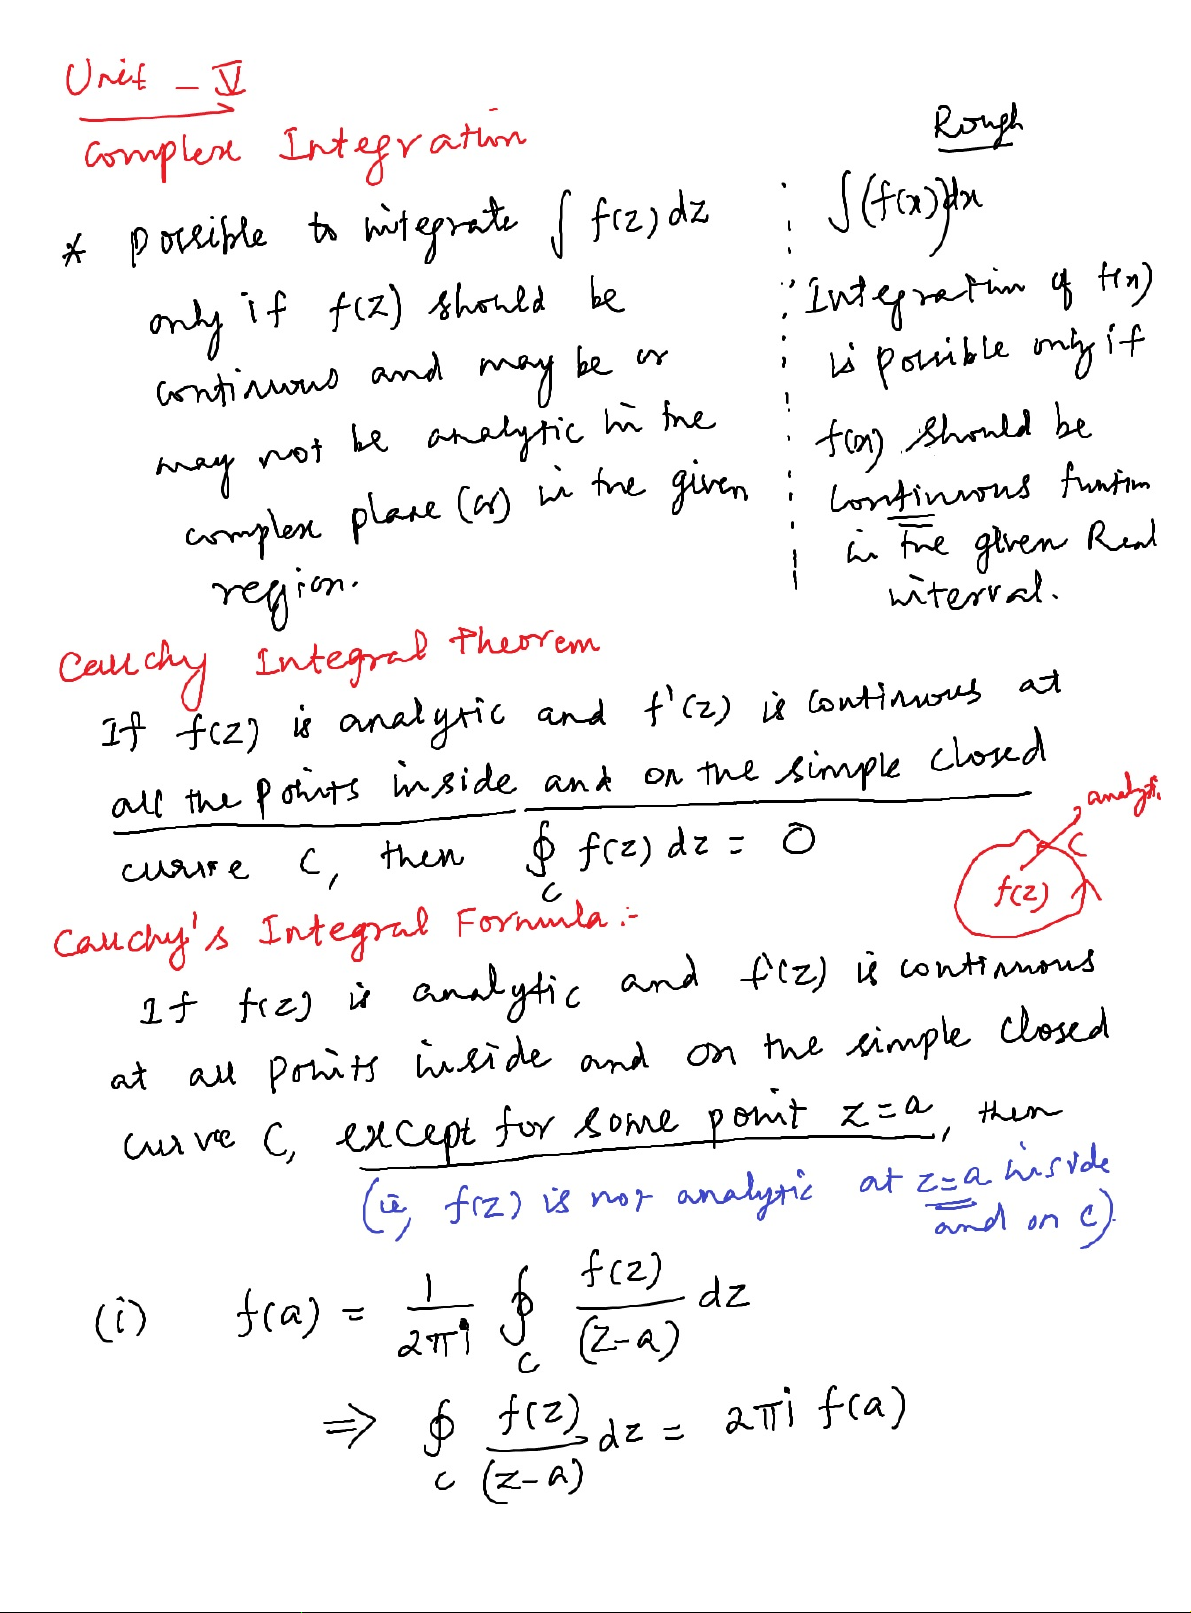 Unit - V
Complex Integration
* possible to integrate ∫ f(z) dz
only if f(z) should be
continuous and may be or
may not be analytic in the
complex plane (or) in the given
region.
Rough
∫(f(x))dx
Integration of f(x)
is possible only if
f(x) should be
continuous function
in the given Real
interval.
Cauchy Integral Theorem
If f(z) is analytic and f'(z) is continuous at
all the points inside and on the simple closed
curve C, then ∮_C f(z) dz = 0
analytic
C
f(z)
Cauchy's Integral Formula :-
If f(z) is analytic and f'(z) is continuous
at all points inside and on the simple closed
curve C, except for some point z=a, then
(ie, f(z) is not analytic at z=a inside
and on C).
(i) f(a) = 1/2πi ∮_C f(z)/(z-a) dz
⇒ ∮_C f(z)/(z-a) dz = 2πi f(a)